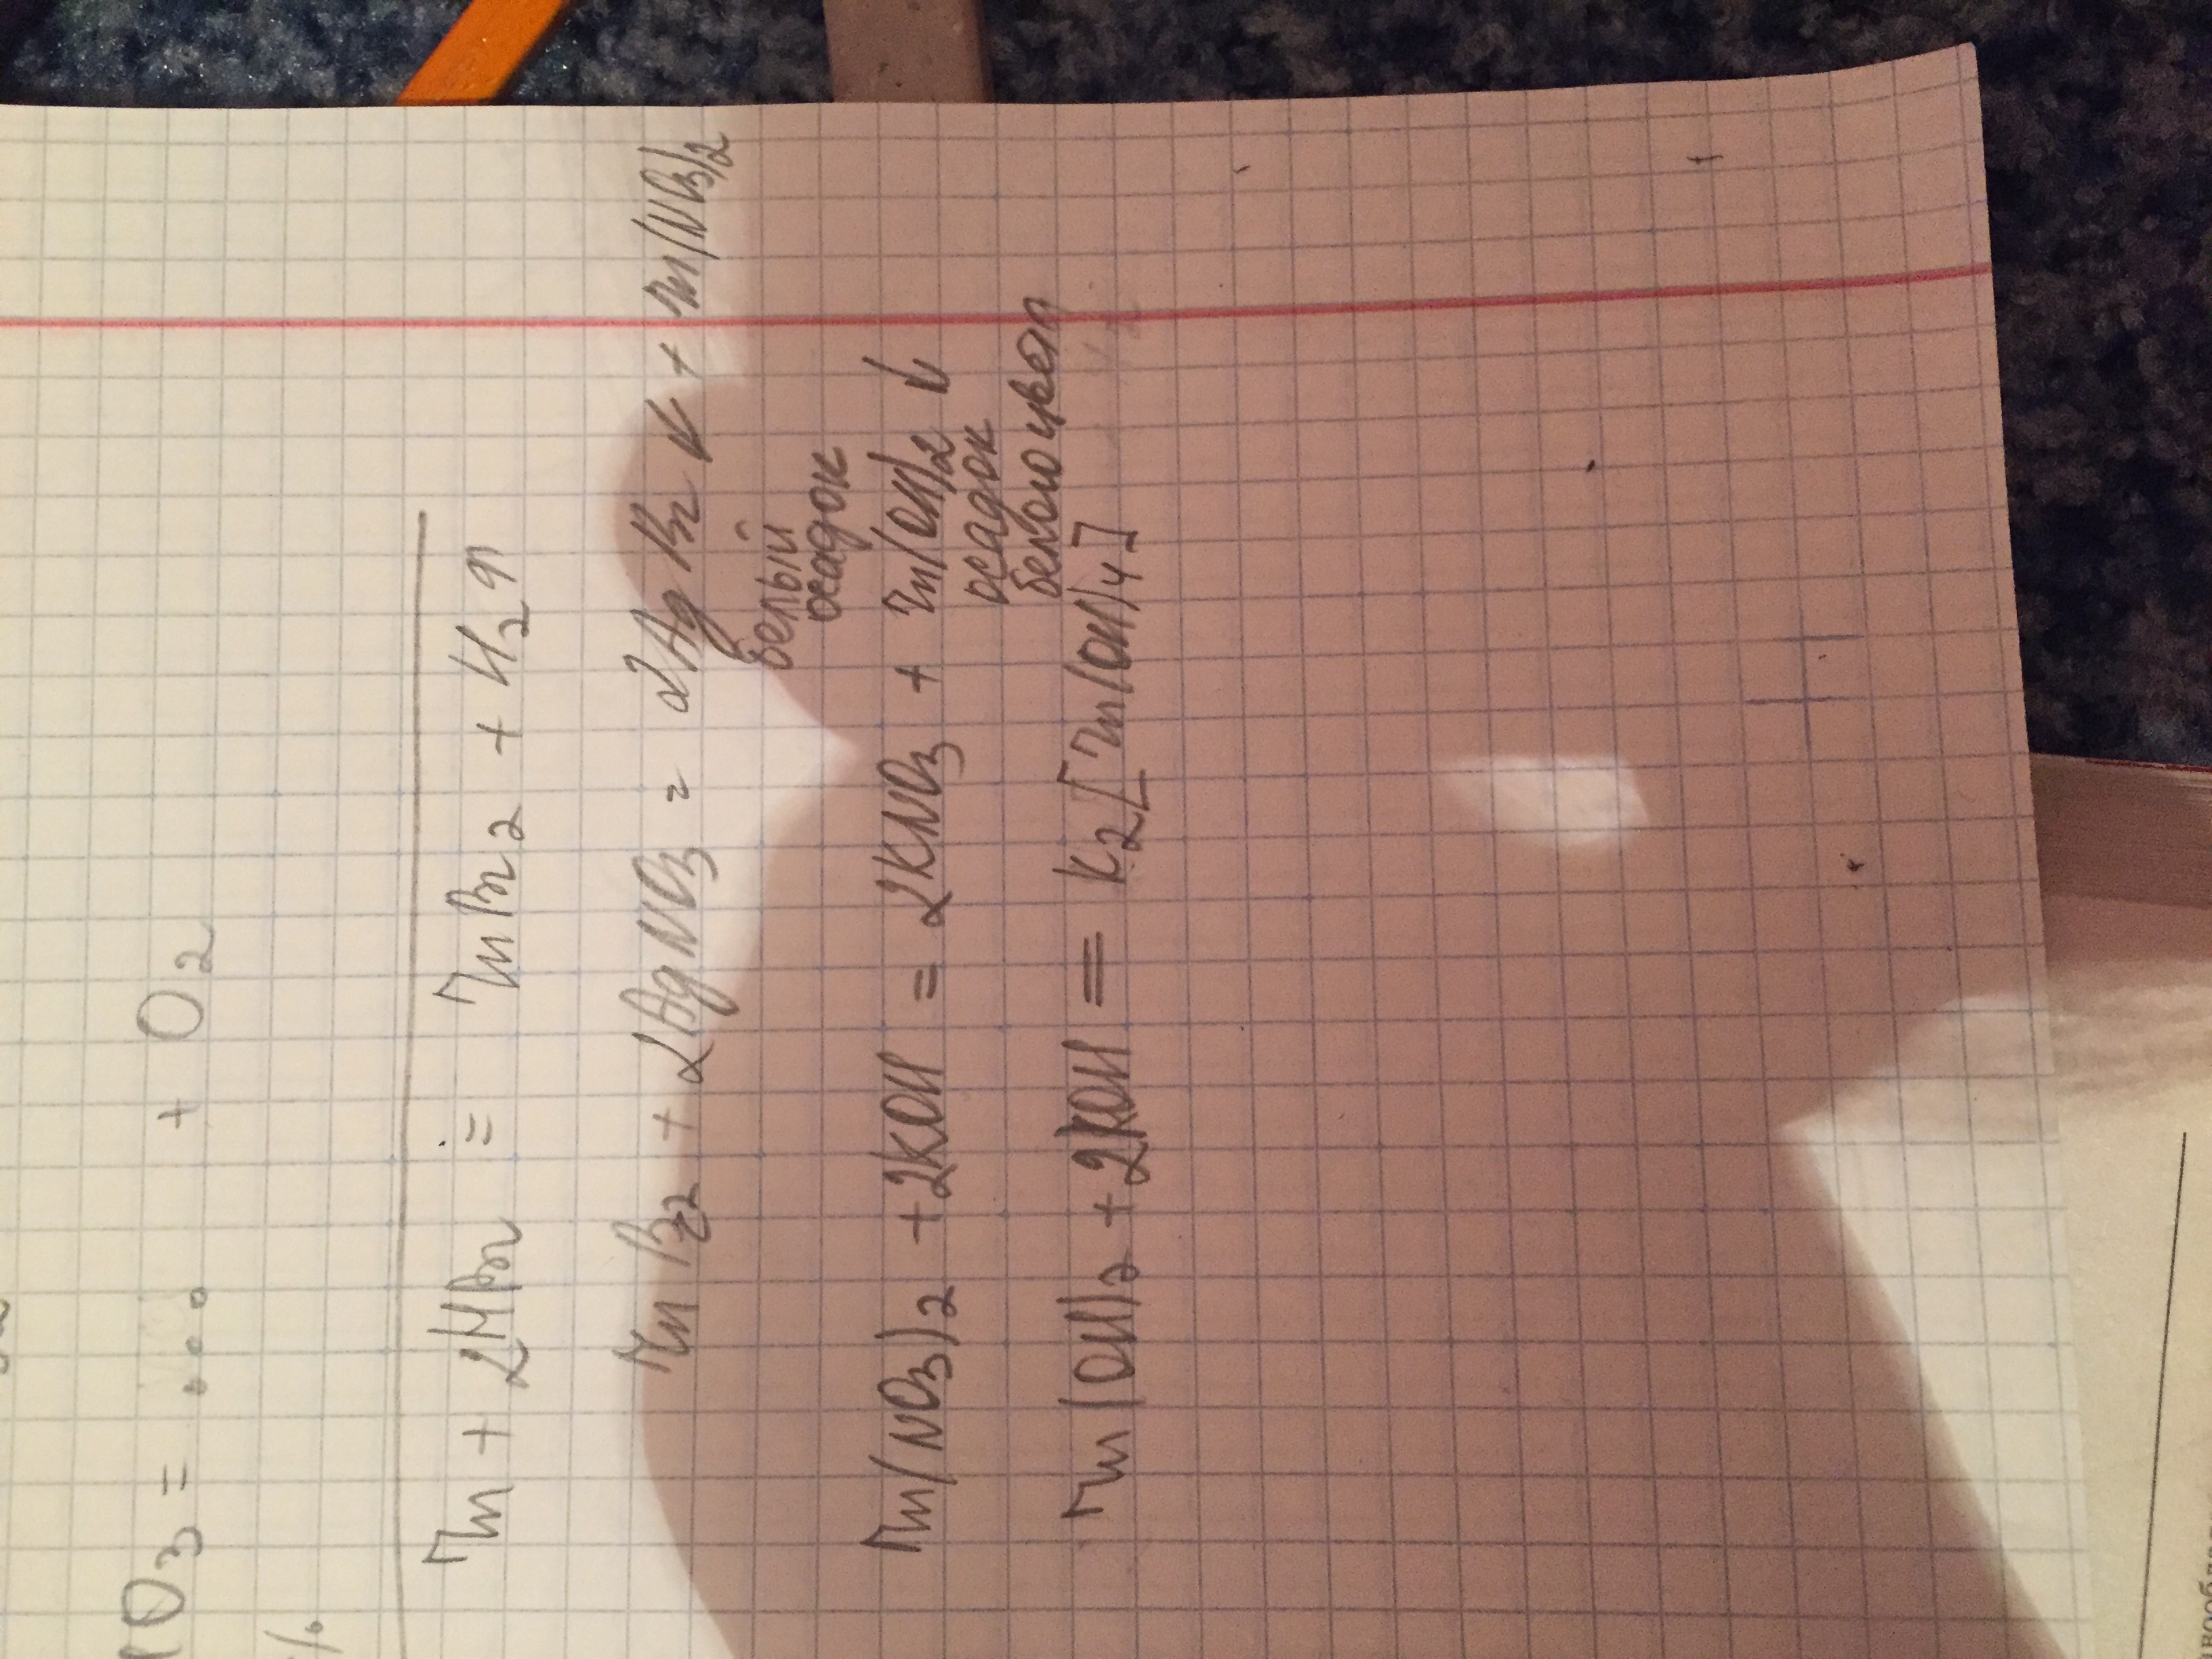 O3 = ... + O2
%
Zn + 2HBr = ZnBr2 + H2↑
ZnBr2 + 2AgNO3 = 2AgBr↓ + Zn(NO3)2
белый
осадок
Zn(NO3)2 + 2KOH = 2KNO3 + Zn(OH)2↓
осадок
белого цвета
Zn(OH)2 + 2KOH = K2[Zn(OH)4]